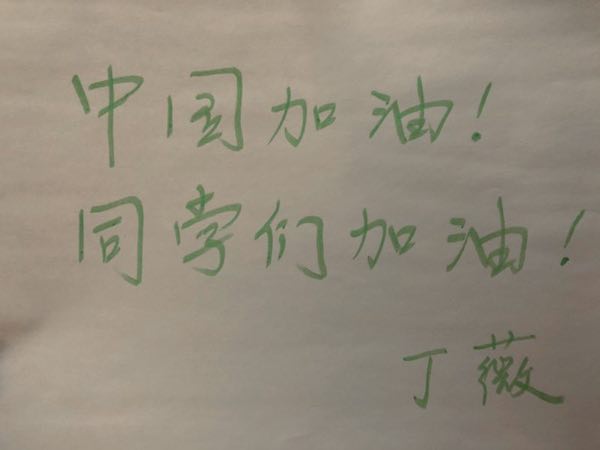 中国加油!
同学们加油!
丁薇